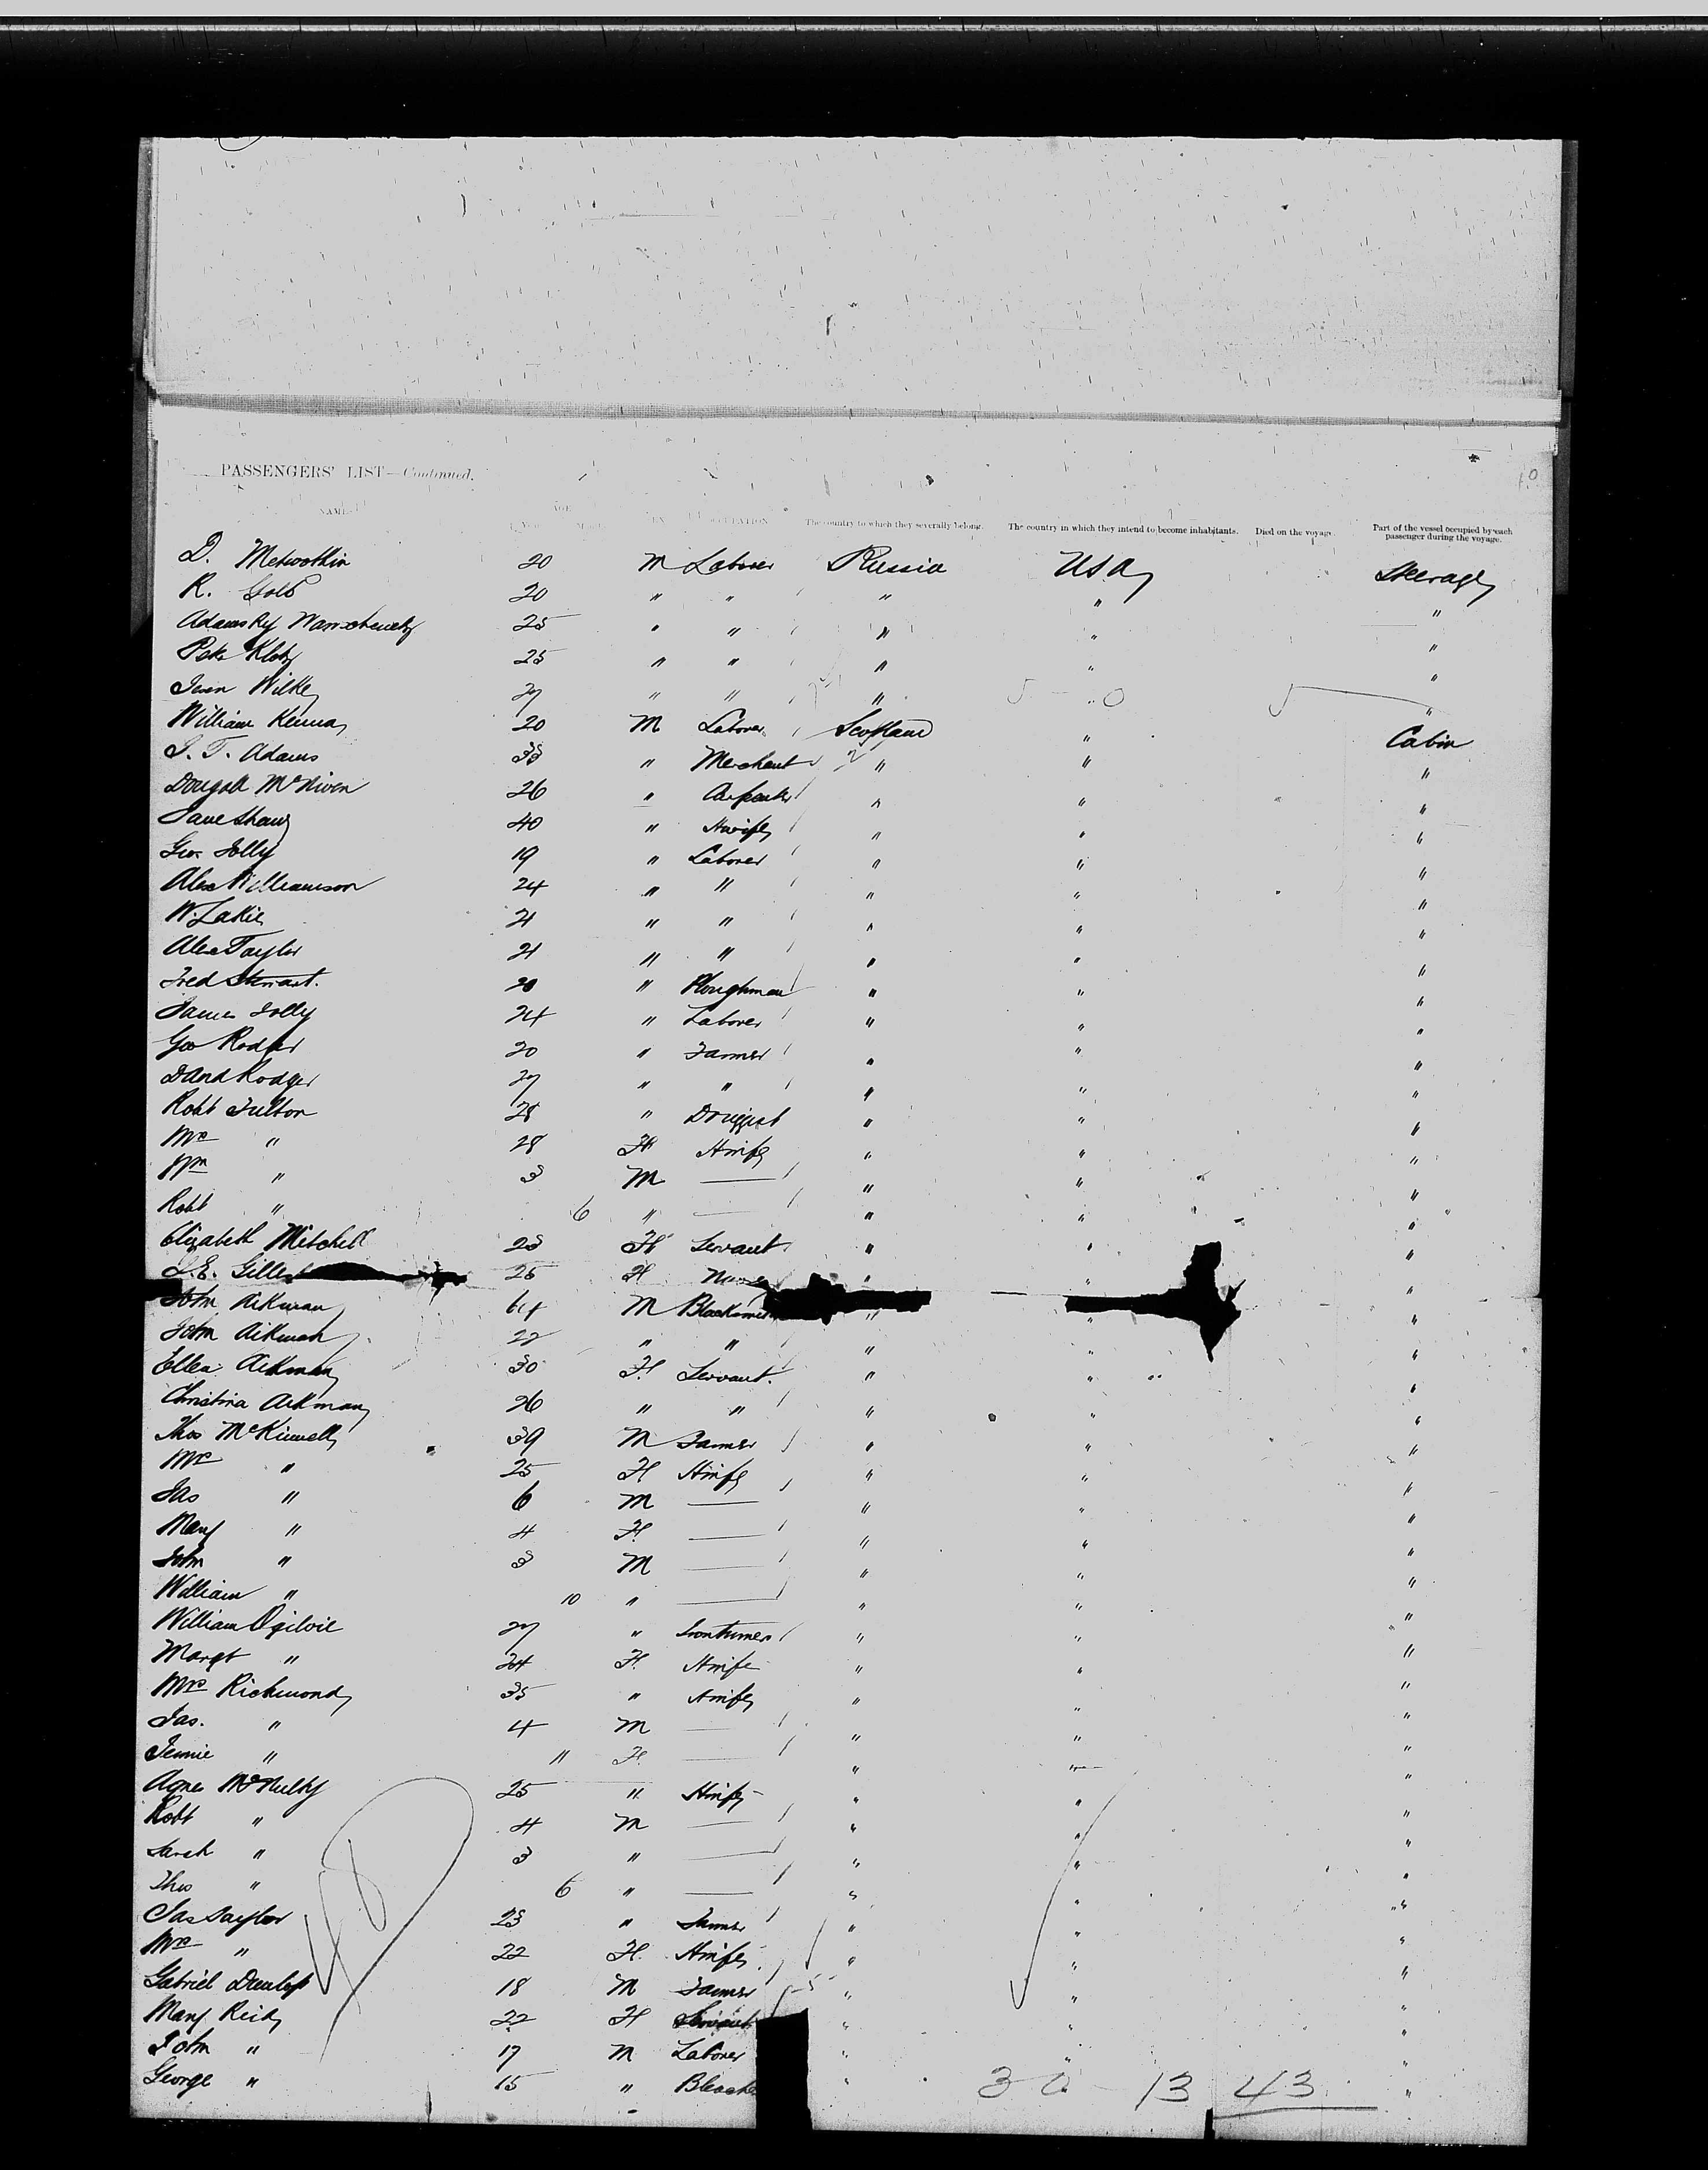 PASSENGERS' LIST—Continued.
NAMES AGE SEX OCCUPATION The country to which they severally belong. The country in which they intend to become inhabitants. Died on the voyage. Part of the vessel occupied by each passenger during the voyage.
D. 20 M Laborer Russia USA Steerage
R. Gold 20 " " " " "
Adamsky 25 " " " " "
Pete Klotz 25 " " " " "
Wilke 27 " " " " "
William Kenna 20 M Laborer Scotland " Cabin
J. T. Adams 33 " Merchant " " "
Dougall McNiven 26 " Carpenter " " "
Jane Shaw 40 " Hwife " " "
Geo Jolly 19 " Laborer " " "
Alex Williamson 24 " " " " "
W. Lakie 21 " " " " "
Alex Taylor 21 " " " " "
Fred Stewart. 20 " Ploughman " " "
James Jolly 24 " Laborer " " "
Geo Rodger 20 " Farmer " " "
David Rodger 27 " " " " "
Robt Fulton 28 " Druggist " " "
Mrs " 28 F Hwife " " "
Wm " 3 M — " " "
Robt " 6 " — " " "
Elizabeth Mitchell 23 F Servant " " "
25 F " " "
John Aikman 64 M " " "
John Aikman 22 " " " " "
Ellen Aikman 30 F. Servant. " " "
Christina Aikman 26 " " " " "
Thos McKinnell 39 M Farmer " " "
Mrs " 25 F Hwife " " "
Jas " 6 M — " " "
Mary " 4 F. — " " "
John " 3 M — " " "
William " 10 " — " " "
William Ogilvie 27 " Ironturner " " "
Margt " 24 F. Hwife " " "
Mrs Richmond 35 " Hwife " " "
Jas. " 4 M — " " "
Jennie " 11 F. — " " "
Agnes McNulty 25 " Hwife " " "
Robt " 4 M — " " "
Sarah " 3 " — " " "
Thos " 6 " — " " "
Jas Taylor 23 " Farmer " " "
Mrs " 22 F. Hwife " " "
Gabriel Dunlop 18 M Farmer " " "
Mary Reid 22 F Servant " " "
John " 17 M Laborer " " "
George " 15 " " " "
30 13 43